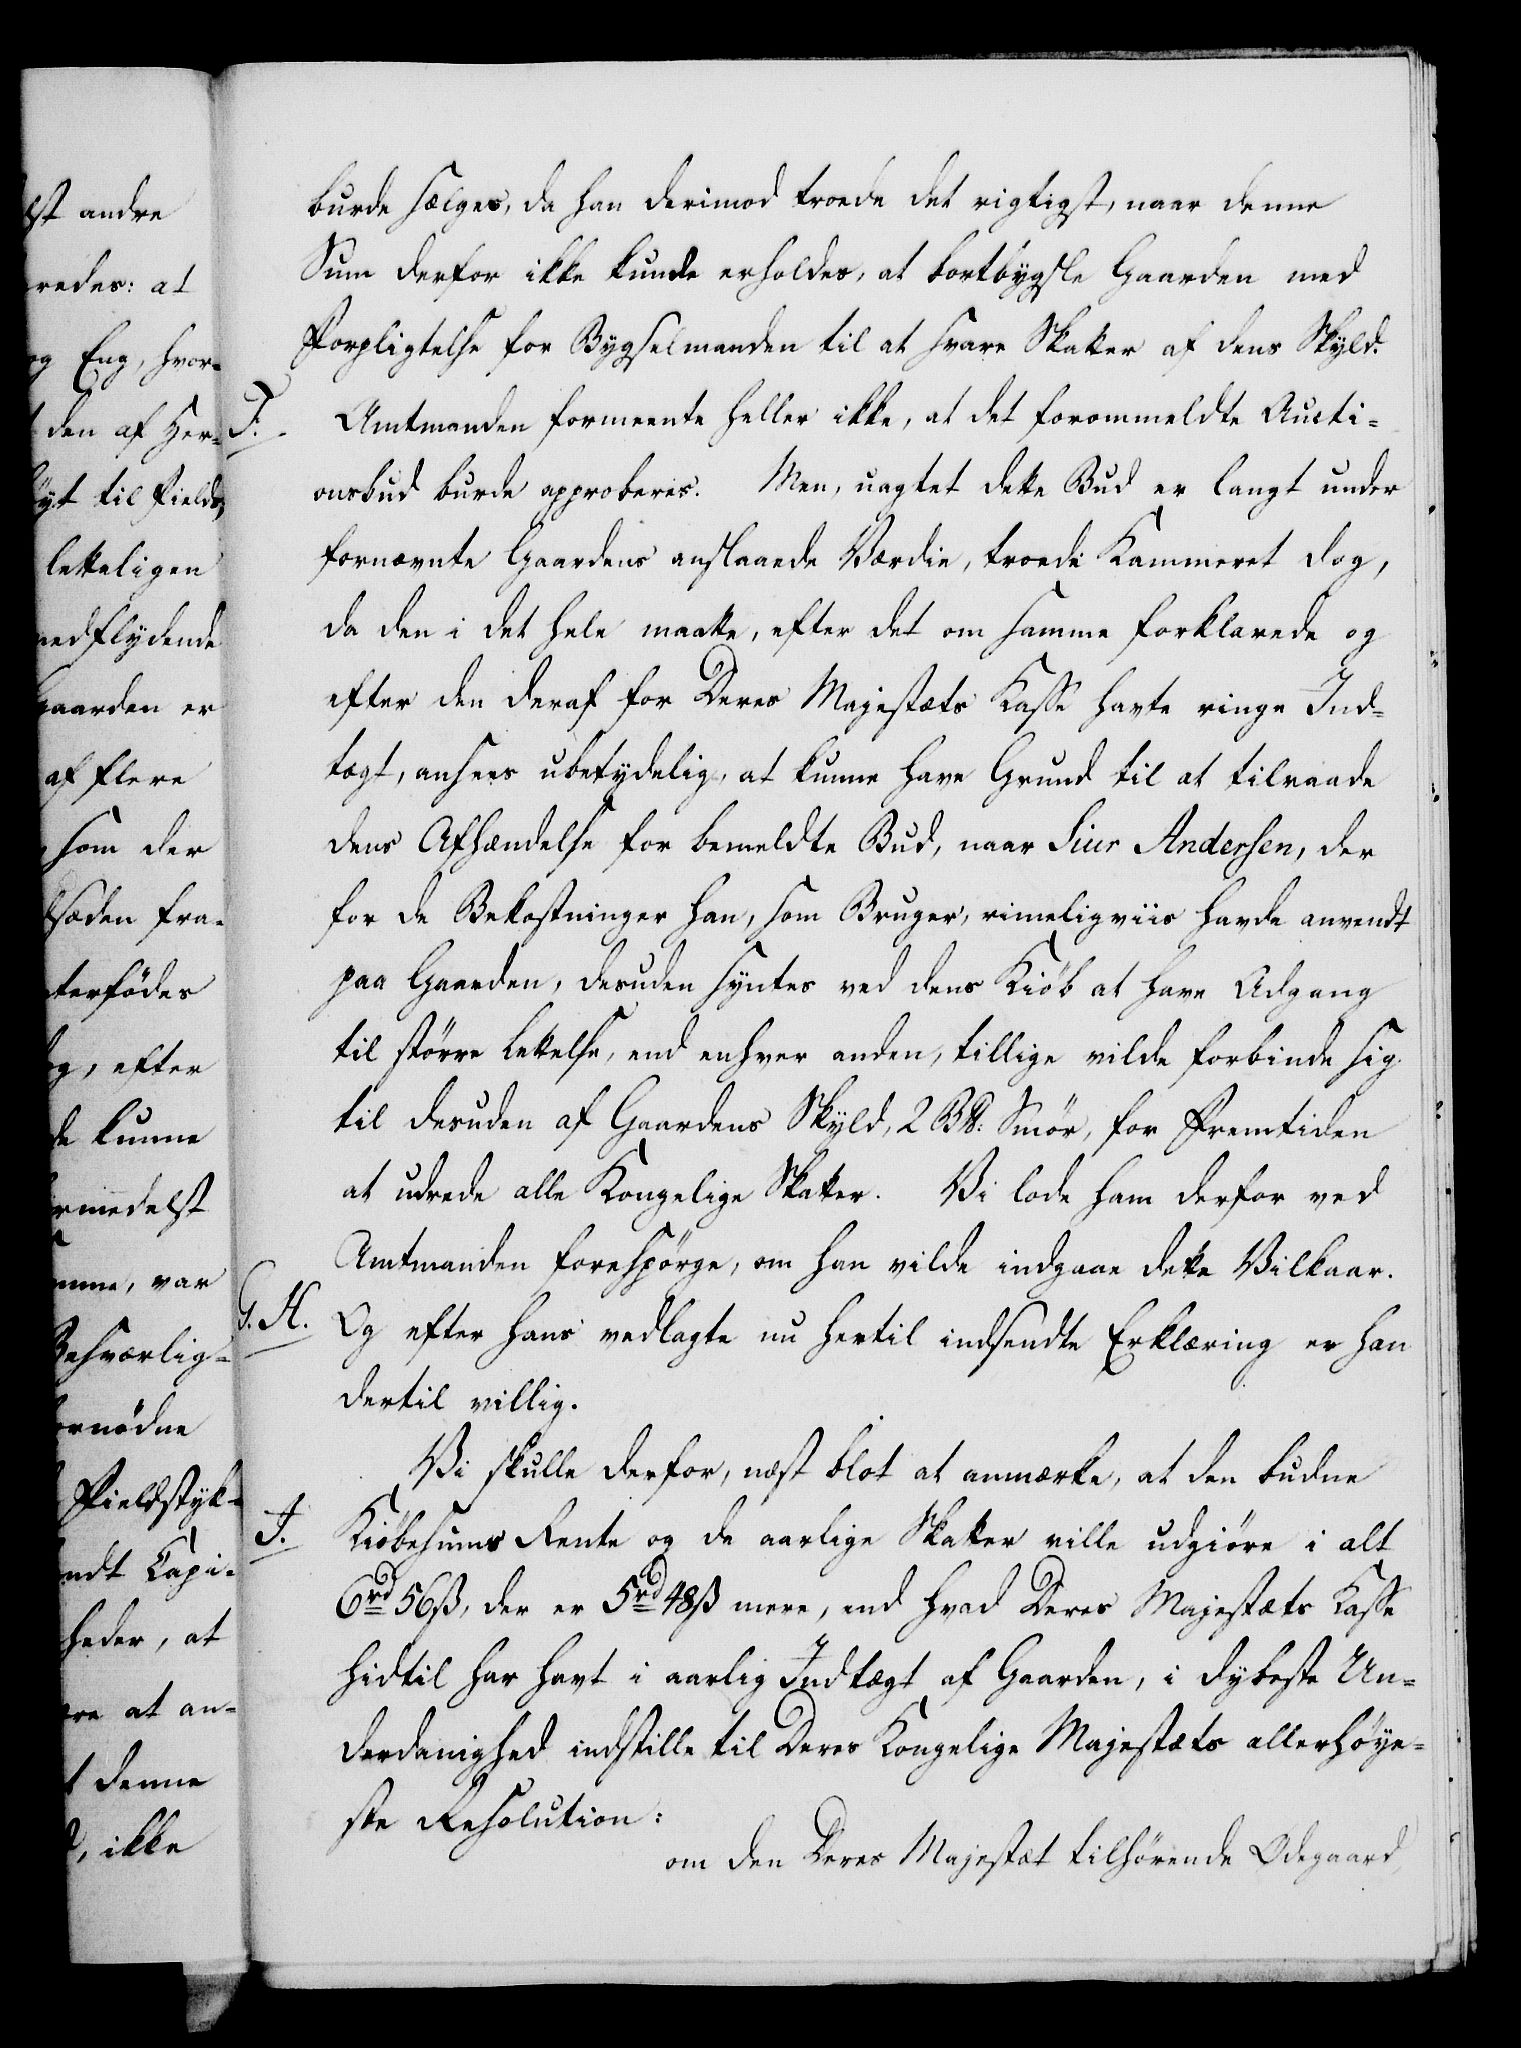 lst andre
redes: at
og Eng, hvor-
den af Her-
öyt til Fields,
letteligen
nedflydende
Gaarden er
af flere
som der
sæden fra-
terfödes
og, efter
de kunne
rmedelst
mme, var
Besværlig-
ornödne
Fieldstyk-
ndt Capi-
heder, at
ere at an-
t denne
, ikke
burde sælges, da han derimod troede det rigtigst, naar denne
Sum derfor ikke kunde erholdes, at bortbygsle Gaarden med
Forpligtelse for Bygselmanden til at svare Skatter af dens Skyld.
F. Amtmanden formeente heller ikke, at det forommeldte Aucti-
onsbud burde approberes. Men, uagtet dette Bud er langt under
fornævnte Gaardens anslaaede Værdie, troede Kammeret dog,
da den i det hele maatte, efter det om samme forklarede og
efter den deraf for Deres Majestæts Kasse havte ringe Ind-
tægt, ansees ubetydelig, at kunne have Grund til at tilraade
dens Afhændelse for bemeldte Bud, naar Siur Andersen, der
for de Bekostninger han, som Bruger, rimeligviis havde anvendt
paa Gaarden, desuden syntes ved dens Kiöb at have Adgang
til större Lettelse, end enhver anden, tillige vilde forbinde sig
til desuden af Gaardens Skyld, 2 B℔: Smör, for Fremtiden
at udrede alle Kongelige Skatter. Vi lode ham derfor ved
Amtmanden forespörge, om han vilde indgaae dette Vilkaar.
G. H. Og efter hans vedlagte nu hertil indsendte Erklæring er han
dertil villig.
Vi skulle derfor, næst blot at anmærke, at den budne
I. Kiöbesums Rente og de aarlige Skatter ville udgiöre i alt
6rd 56ß, der er 5rd 48ß mere, end hvad Deres Majestæts Kasse
hidtil har havt i aarlig Indtægt af Gaarden, i dybeste Un-
derdanighed indstille til Deres Kongelige Majestæts allerhöye-
ste Resolution:
om den Deres Majestæt tilhörende Ödegaard,